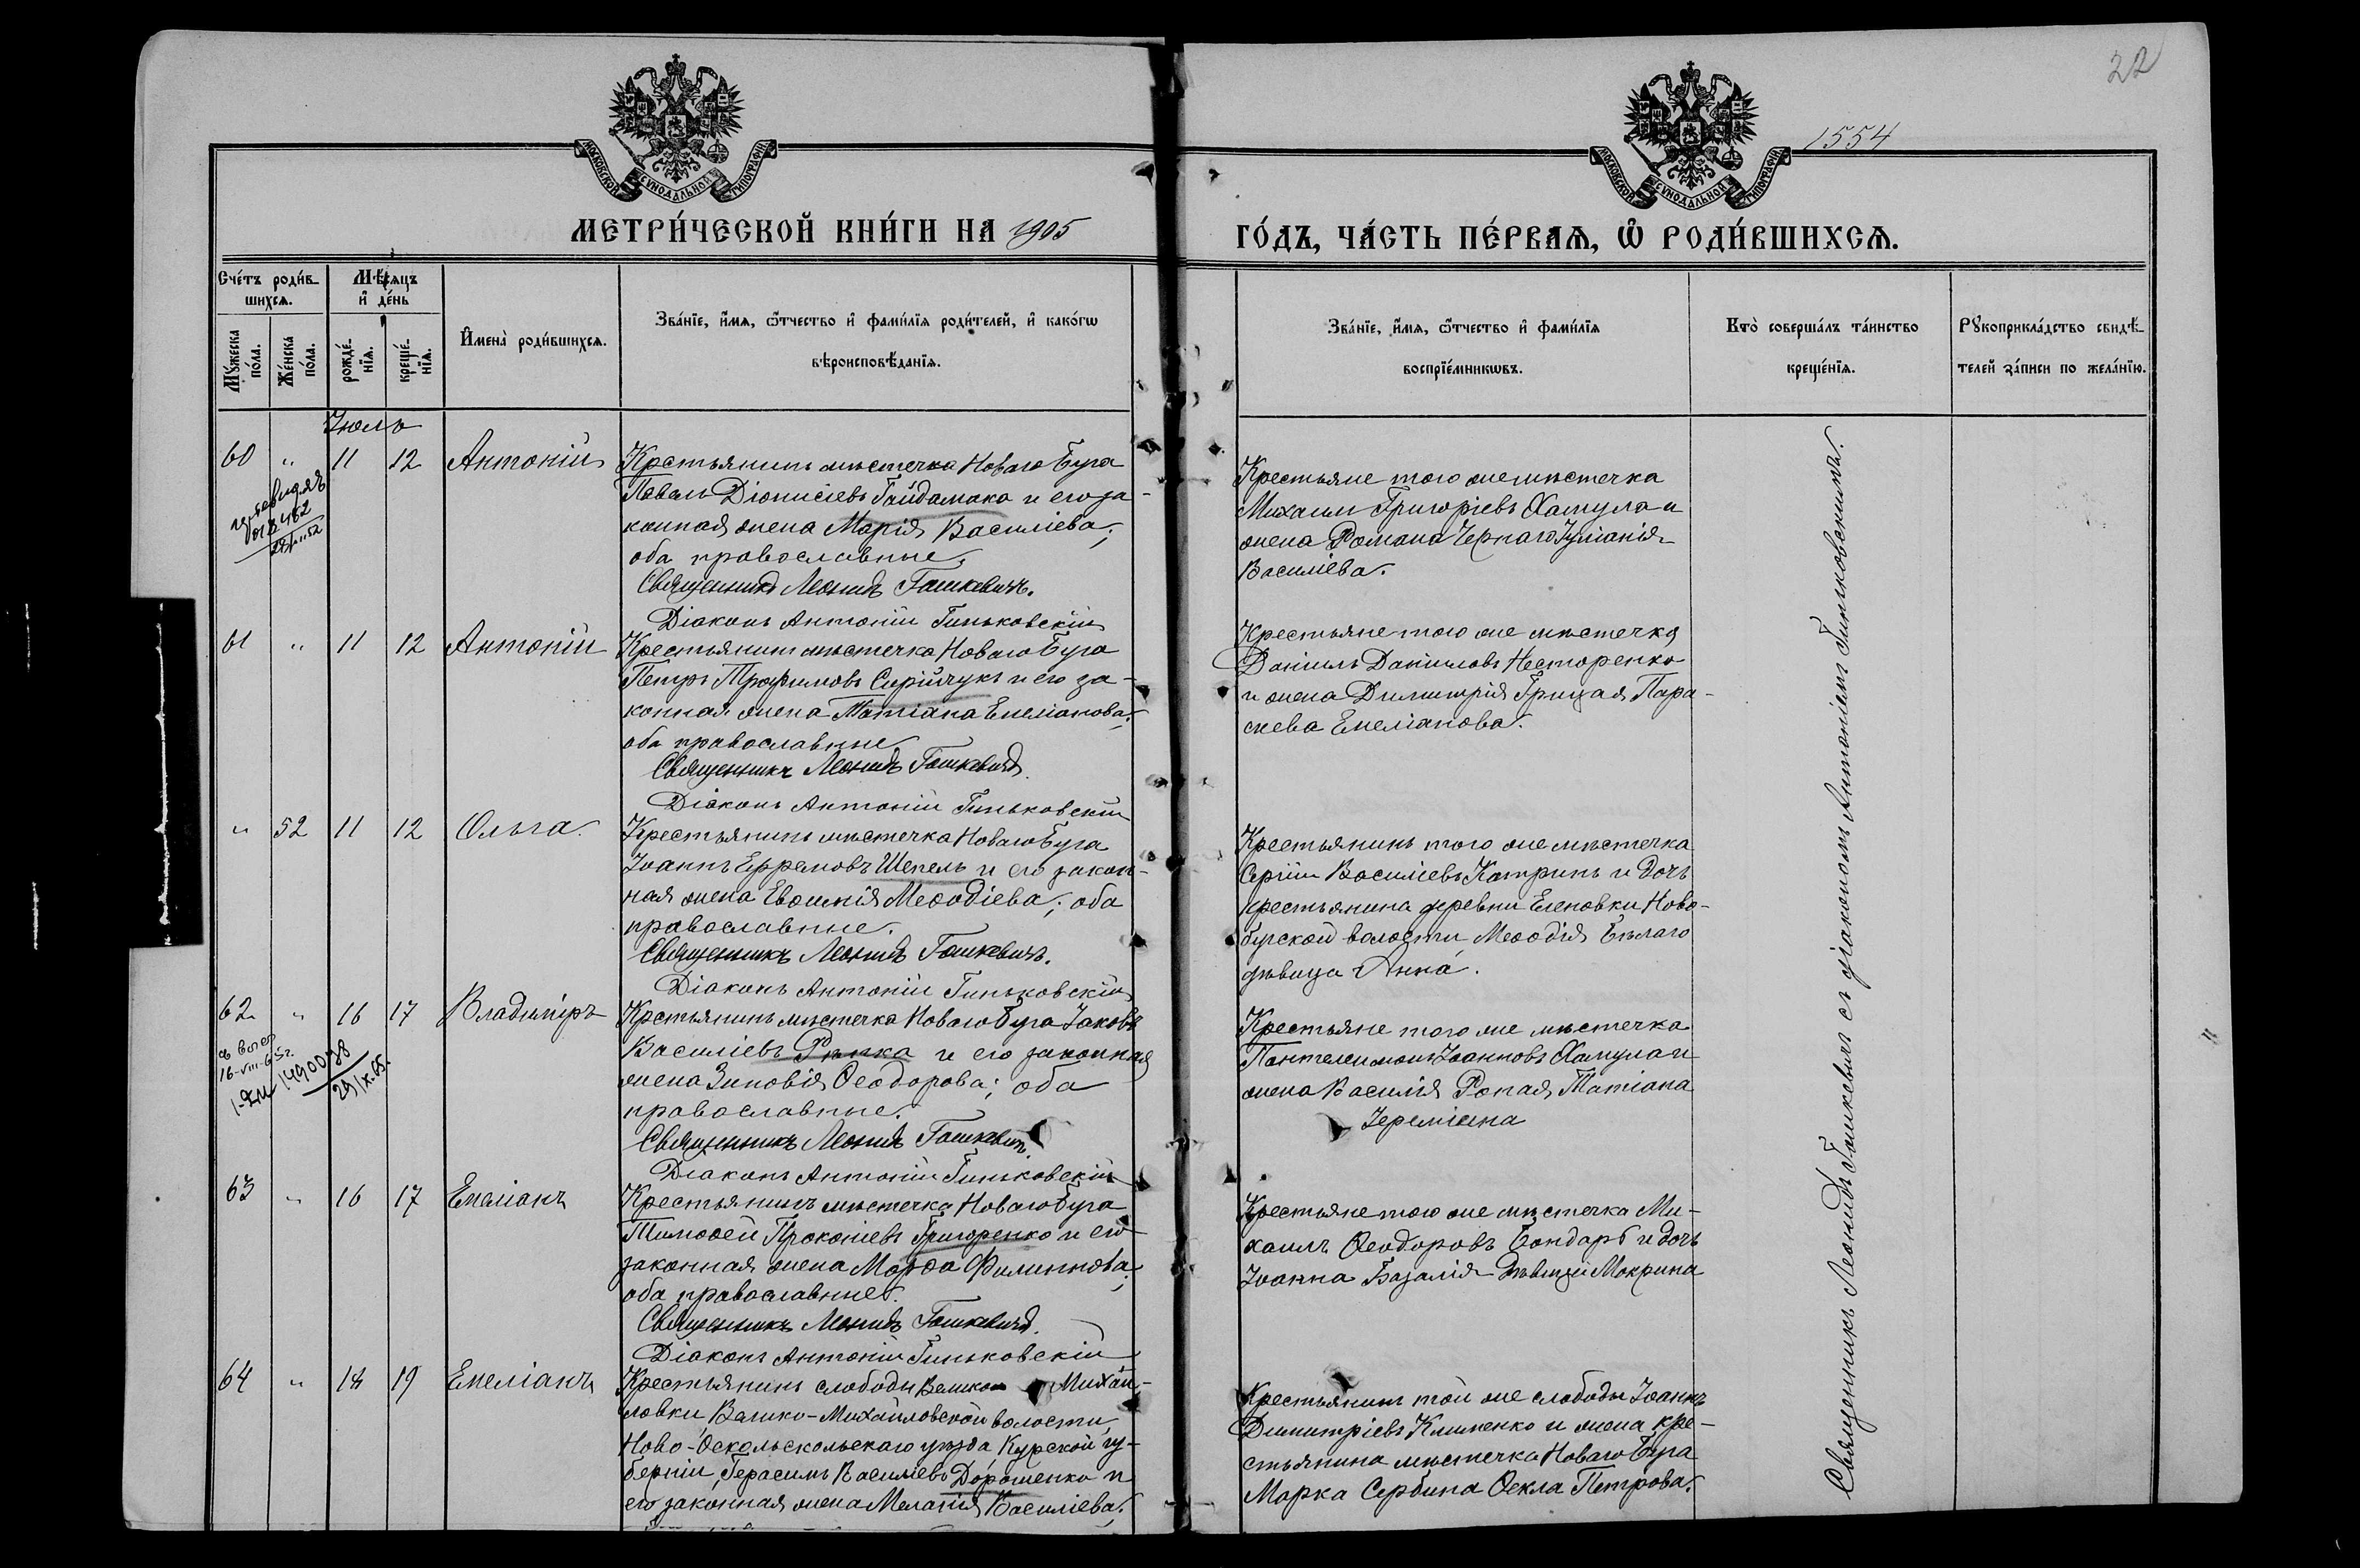 22
1554
МОСКОВСКОЙ СѴНОДАЛЬНОЙ ТИПОГРАФІИ
МОСКОВСКОЙ СѴНОДАЛЬНОЙ ТИПОГРАФІИ
МЕТРИ́ЧЕСКОЙ КНИ́ГИ НА 1905
ГО́ДЪ, ЧА́СТЬ ПЕ́РВАѦ, Ѡ҆ РОДИ́ВШИХСѦ.
Сче́тъ роди́в-
шихсѧ.
Мѣ́сѧцъ
и҆ де́нь
Мꙋ́жеска
по́ла.
Же́нска
по́ла.
рожде́-
нїѧ.
креще́-
нїѧ.
И҆мена̀ роди́вшихсѧ.
Зва́нїе, и҆́мѧ, ѻ҆́тчество и҆ фами́лїѧ роди́телей, и҆ како́гѡ
вѣроисповѣ́данїѧ.
Зва́нїе, и҆́мѧ, ѻ҆́тчество и҆ фами́лїѧ
воспрїе́мникѡвъ.
Кто̀ соверша́лъ та́инство
креще́нїѧ.
Рꙋкоприкла́дство свидѣ́-
телей за́писи по жела́нїю.
Іюль
60 " 11 12 Антоній
Крестьянинъ мѣстечка Новаго Буга
Павелъ Діонисіевъ Гайдамака и его за-
конная жена Марія Василіева;
оба православные.
Священникъ Леонидъ Гошкевичъ.
Діаконъ Антоній Гиньковскій
Крестьяне того же мѣстечка
Михаилъ Григоріевъ Хамула и
жена Романа Чернаго Іуліанія
Василіева.
61 " 11 12 Антоній
Крестьянинъ мѣстечка Новаго Буга
Петръ Трофимовъ Сирійчукъ и его за-
конная жена Татіана Емеліанова;
оба православные
Священникъ Леонидъ Гошкевичъ.
Діаконъ Антоній Гиньковскій
Крестьяне того же мѣстечка
Даніилъ Даніиловъ Несторенко
и жена Димитрія Грицая Пара-
скева Емеліанова.
" 52 11 12 Ольга.
Крестьянинъ мѣстечка Новаго Буга
Іоаннъ Ефремовъ Шепель и его закон-
ная жена Евѳимія Меѳодіева; оба
православные.
Священникъ Леонидъ Гошкевичъ.
Діаконъ Антоній Гиньковскій
Крестьянинъ того же мѣстечка
Сергій Василіевъ Катринъ и дочь
крестьянина деревни Еленовки Ново-
бугской волости Меѳодія Бѣлаго
дѣвица Анна.
62 " 16 17 Владиміръ
16-VIII-65г.
1490078
29/IX.65.
Крестьянинъ мѣстечка Новаго Буга Іаковъ
Василіевъ Рѣпка и его законная
жена Зиновія Ѳеодорова; оба
православные.
Священникъ Леонидъ Гошкевичъ.
Діаконъ Антоній Гиньковскій
Крестьяне того же мѣстечка
Пантелеимонъ Іоанновъ Хамула и
жена Василія Ропая Татіана
63 " 16 17 Емеліанъ
Крестьянинъ мѣстечка Новаго Буга
Тимоѳей Прокопіевъ Григоренко и его
законная жена Марѳа Филиппова;
оба православные.
Священникъ Леонидъ Гошкевичъ.
Діаконъ Антоній Гиньковскій
Крестьяне того же мѣстечка Ми-
хаилъ Ѳеодоровъ Бондарь и дочь
Іоанна Базалія дѣвица Мокрина
64 " 18 19 Емеліанъ
Крестьянинъ слободы Велико Михай-
ловки, Велико-Михайловской волости
Ново-Оскольскольскаго уѣзда, Курской гу-
берніи, Герасимъ Василіевъ Дорошенко и
его законная жена Меланія Василіева;
Крестьянинъ той же слободы Іоаннъ
Димитріевъ Клименко и жена кре-
стьянина мѣстечка Новаго Буга
Марка Сербина Ѳекла Петрова.
Священникъ Леонидъ Гошкевичъ съ діакономъ Антоніемъ Гиньковскимъ.